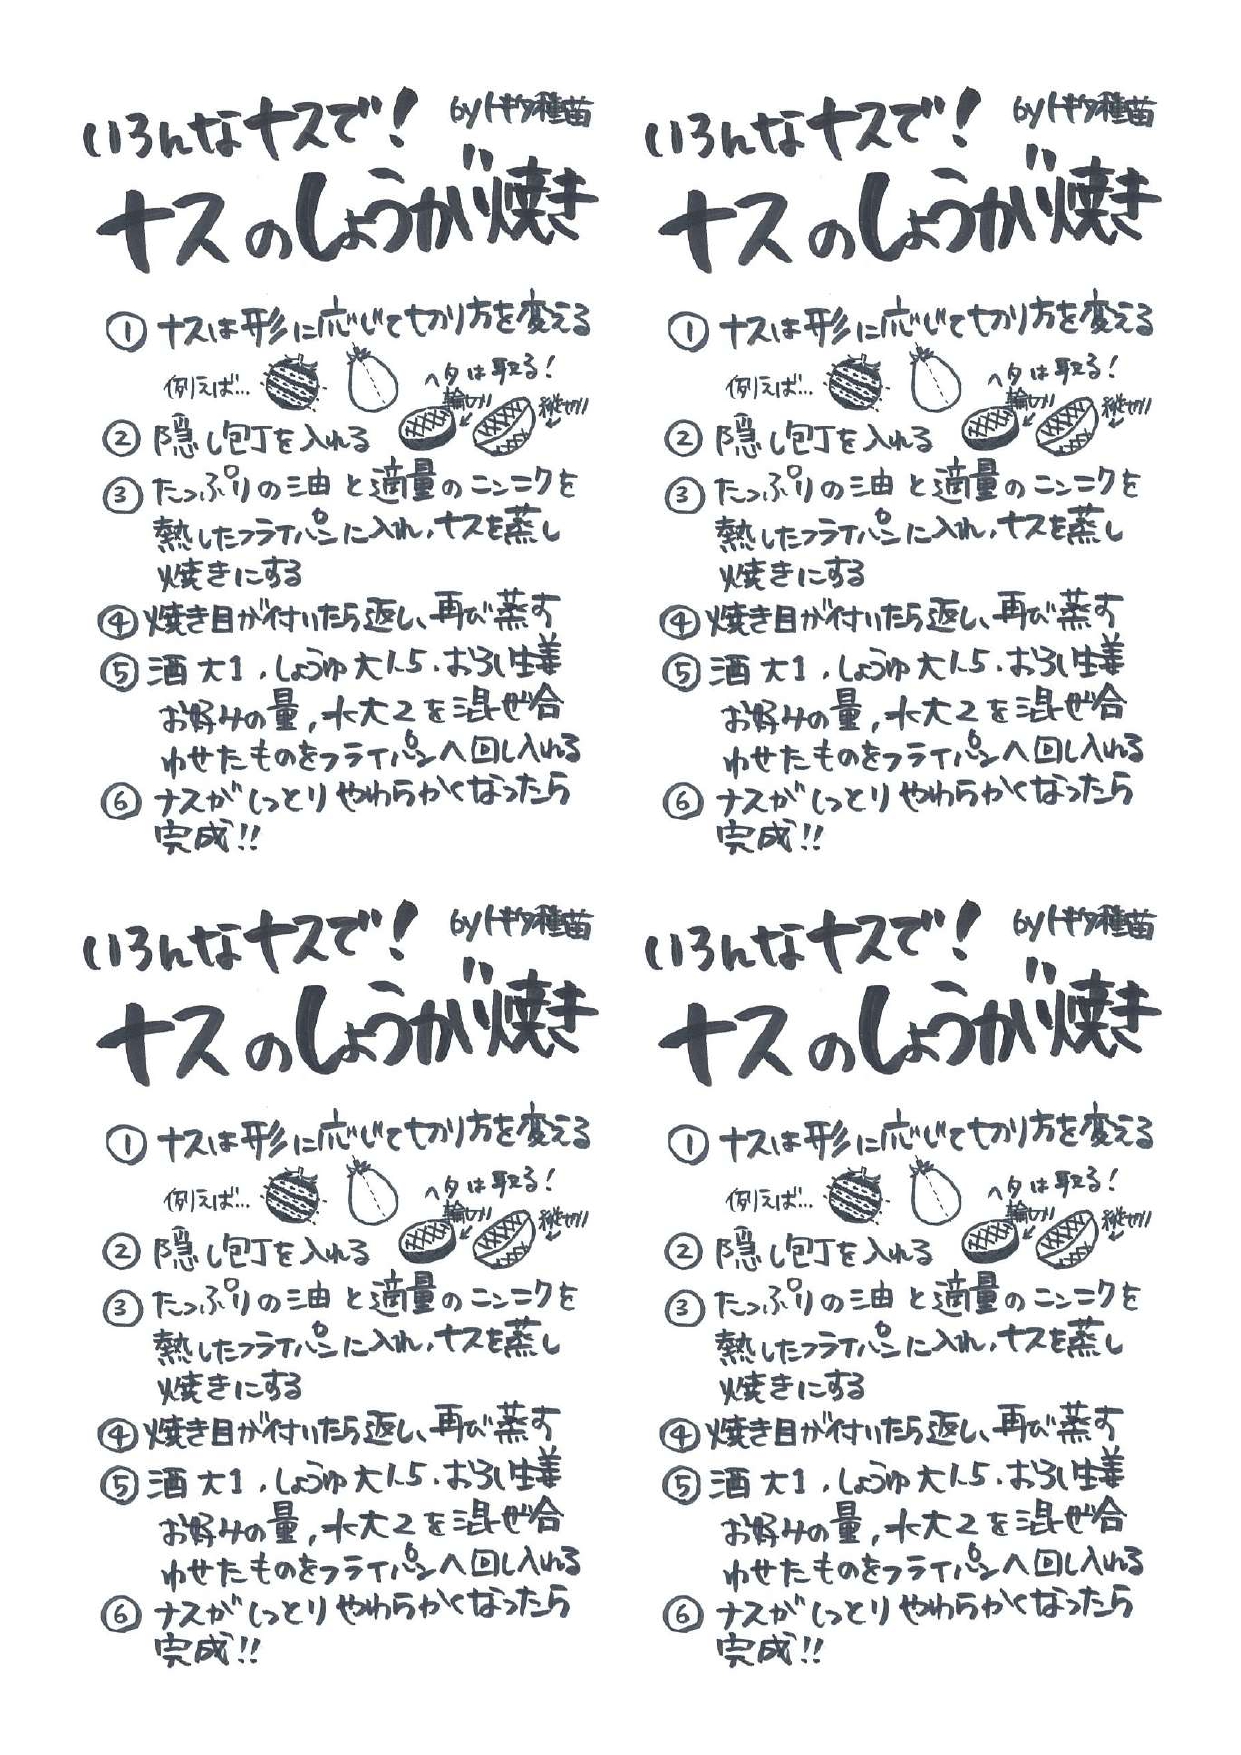 いろんなナスで!
byトキタ種苗
ナスのしょうが焼き
① ナスは形に応じて切り方を変える
例えば…
ヘタは取る!
輪切り
縦切り
② 隠し包丁を入れる
③ たっぷりの油と適量のニンニクを
熱したフライパンに入れ、ナスを蒸し
焼きにする
④ 焼き目が付いたら返し、再び蒸す
⑤ 酒大1、しょうゆ大1.5、おろし生姜
お好みの量、水大2を混ぜ合
わせたものをフライパンへ回し入れる
⑥ ナスがしっとりやわらかくなったら
完成!!
いろんなナスで!
byトキタ種苗
ナスのしょうが焼き
① ナスは形に応じて切り方を変える
例えば…
ヘタは取る!
輪切り
縦切り
② 隠し包丁を入れる
③ たっぷりの油と適量のニンニクを
熱したフライパンに入れ、ナスを蒸し
焼きにする
④ 焼き目が付いたら返し、再び蒸す
⑤ 酒大1、しょうゆ大1.5、おろし生姜
お好みの量、水大2を混ぜ合
わせたものをフライパンへ回し入れる
⑥ ナスがしっとりやわらかくなったら
完成!!
いろんなナスで!
byトキタ種苗
ナスのしょうが焼き
① ナスは形に応じて切り方を変える
例えば…
ヘタは取る!
輪切り
縦切り
② 隠し包丁を入れる
③ たっぷりの油と適量のニンニクを
熱したフライパンに入れ、ナスを蒸し
焼きにする
④ 焼き目が付いたら返し、再び蒸す
⑤ 酒大1、しょうゆ大1.5、おろし生姜
お好みの量、水大2を混ぜ合
わせたものをフライパンへ回し入れる
⑥ ナスがしっとりやわらかくなったら
完成!!
いろんなナスで!
byトキタ種苗
ナスのしょうが焼き
① ナスは形に応じて切り方を変える
例えば…
ヘタは取る!
輪切り
縦切り
② 隠し包丁を入れる
③ たっぷりの油と適量のニンニクを
熱したフライパンに入れ、ナスを蒸し
焼きにする
④ 焼き目が付いたら返し、再び蒸す
⑤ 酒大1、しょうゆ大1.5、おろし生姜
お好みの量、水大2を混ぜ合
わせたものをフライパンへ回し入れる
⑥ ナスがしっとりやわらかくなったら
完成!!